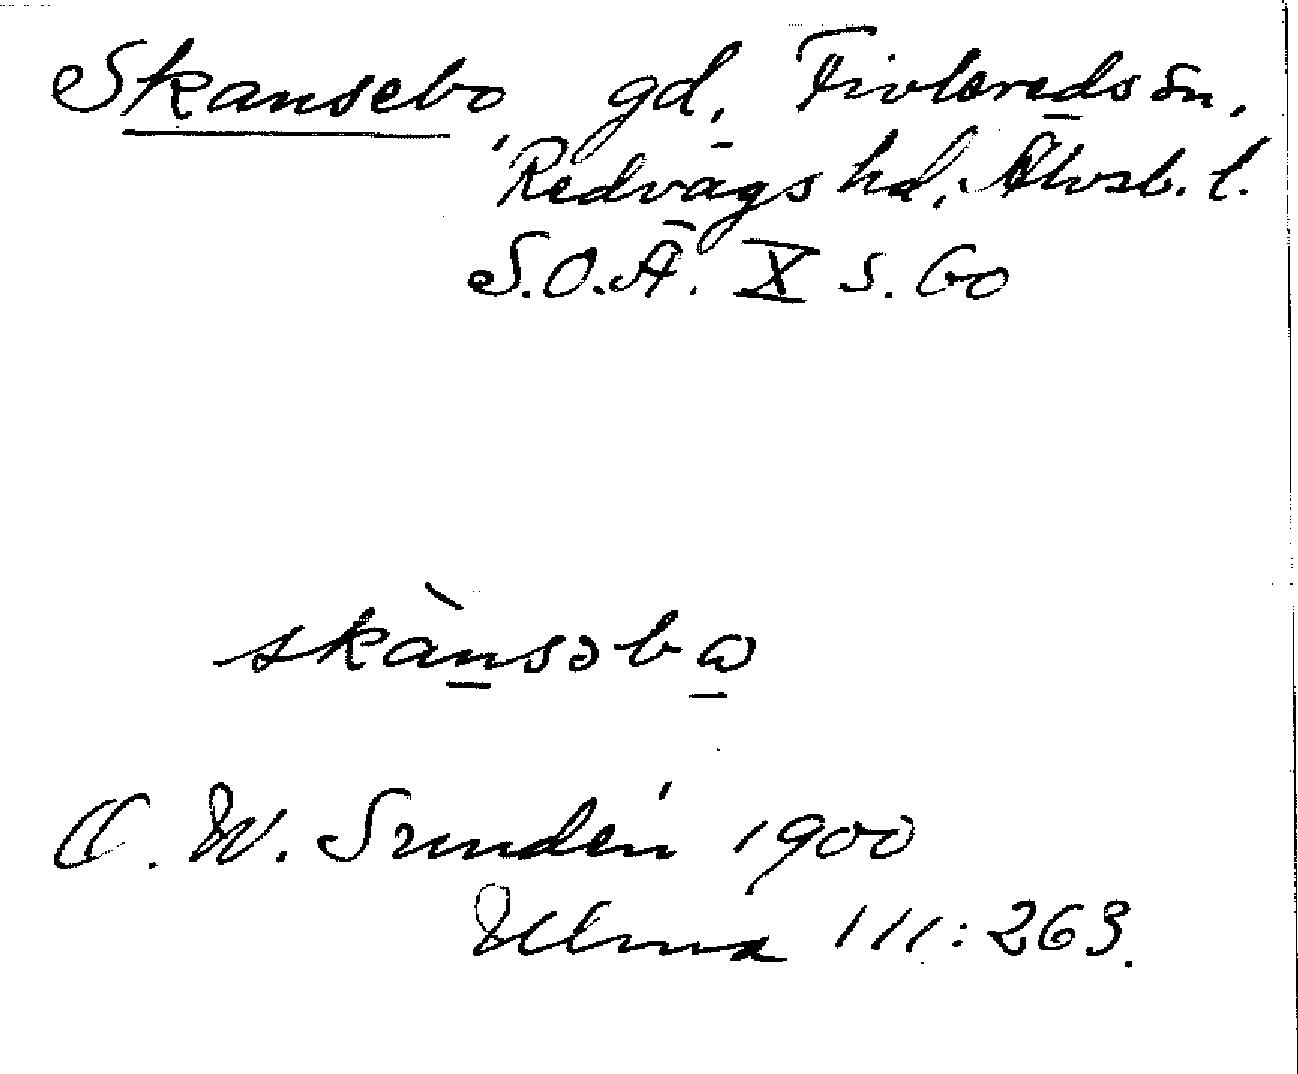 Skansebo, gd, Fivlereds sn,
Redvägs hd, Älvsb. l.
S.O.Ä. X s. 60
skànsəbω
O. W. Sundén 1900
Ulma 111:263.